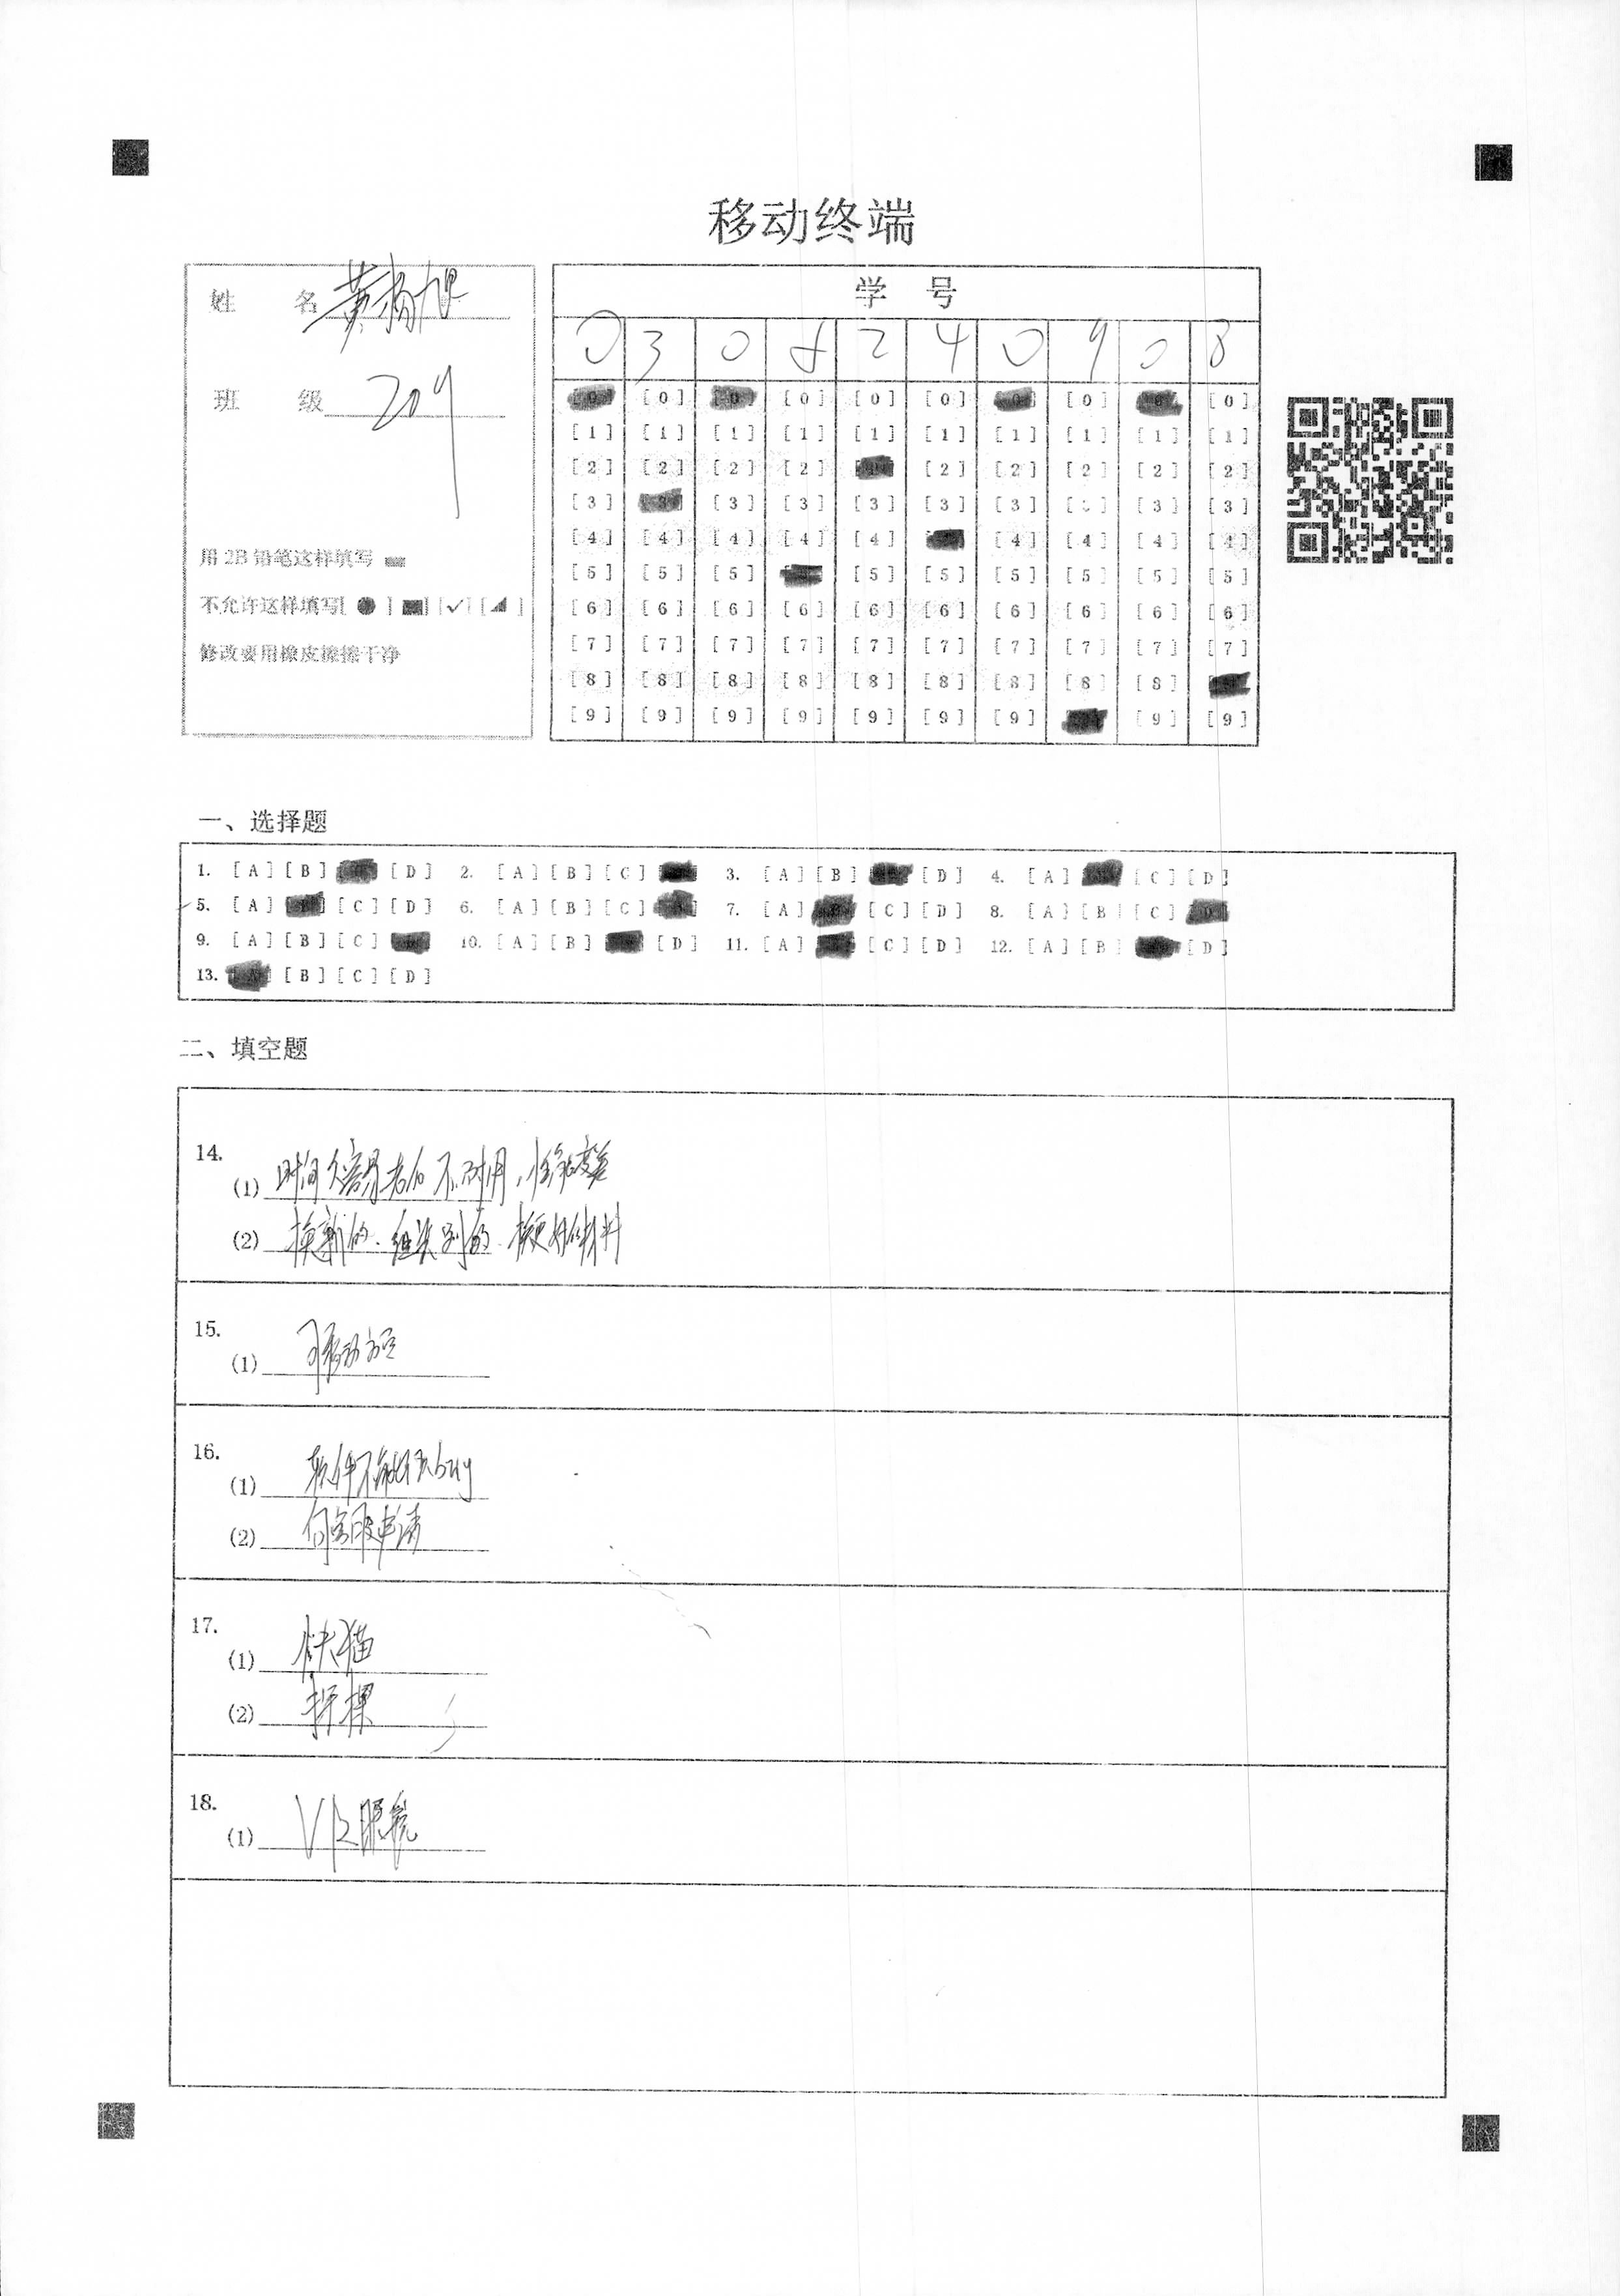 移动终端
姓 名 黄
班 级 209
用 2B 铅笔这样填写
不允许这样填写[ ● ] [■] [✓] [◢ ]
修改要用橡皮擦擦干净
学 号
0 3 0 5 2 4 0 9 0 8
[0] [0] [0] [0] [0] [0] [0] [0] [0] [0]
[1] [1] [1] [1] [1] [1] [1] [1] [1] [1]
[2] [2] [2] [2] [2] [2] [2] [2] [2]
[3] [3] [3] [3] [3] [3] [3] [3] [3] [3]
[4] [4] [4] [4] [4] [4] [4] [4] [4]
[5] [5] [5] [5] [5] [5] [5] [5] [5]
[6] [6] [6] [6] [6] [6] [6] [6] [6] [6]
[7] [7] [7] [7] [7] [7] [7] [7] [7] [7]
[8] [8] [8] [8] [8] [8] [8] [8] [8]
[9] [9] [9] [9] [9] [9] [9] [9] [9]
一、选择题
1. [A] [B] [D] 2. [A] [B] [C] 3. [A] [B] [D] 4. [A] [C] [D]
5. [A] [C] [D] 6. [A] [B] [C] 7. [A] [C] [D] 8. [A] [B] [C] [D]
9. [A] [B] [C] 10. [A] [B] [D] 11. [A] [C] [D] 12. [A] [B] [D]
13. [B] [C] [D]
二、填空题
14.
(1) 时间久容易老化 不耐用，性能变差
(2) 换新的. 组装别的. 换更好的材料
15.
(1) 可移动
16.
(1) 软件不能 bug
(2) 向客服申请
17.
(1) 快猫
(2)
18.
(1) VR眼镜